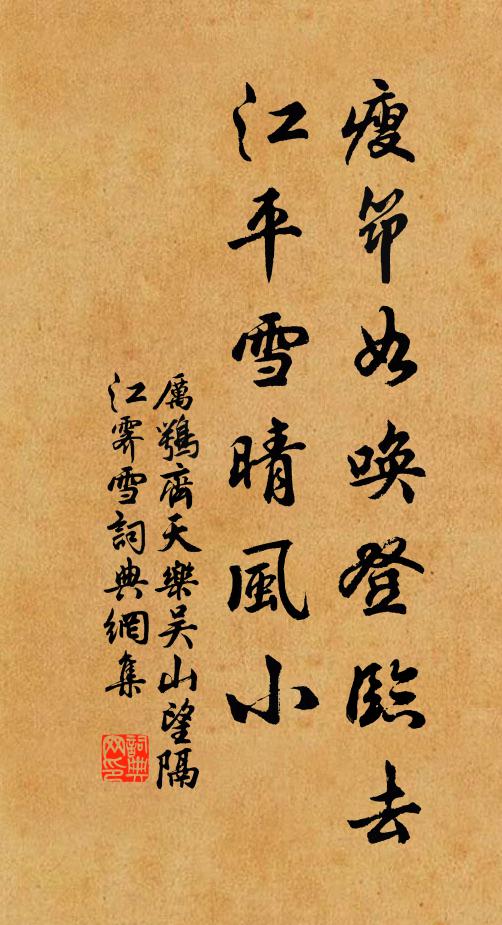 瘦筇如喚登臨去
江平雪晴風小
厲鶚齊天樂吳山望隔
江霽雪詞典網集
詞典
网印